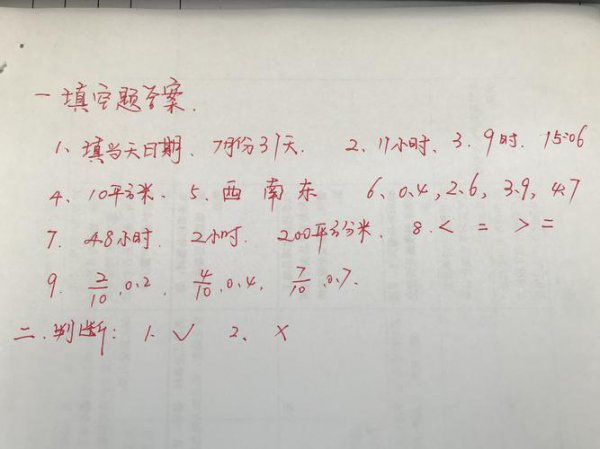 一填空题答案.
1、填当天日期. 7月份31天. 2、11小时、3、9时. 15:06
4、10平方米. 5、西 南 东 6、0.4, 2.6, 3.9, 4.7
7. 48小时. 2小时. 200平方分米. 8. < = > =
9. 2/10.0.2. 4/10.0.4. 7/10.0.7.
二.判断: 1. ✓ 2. ×